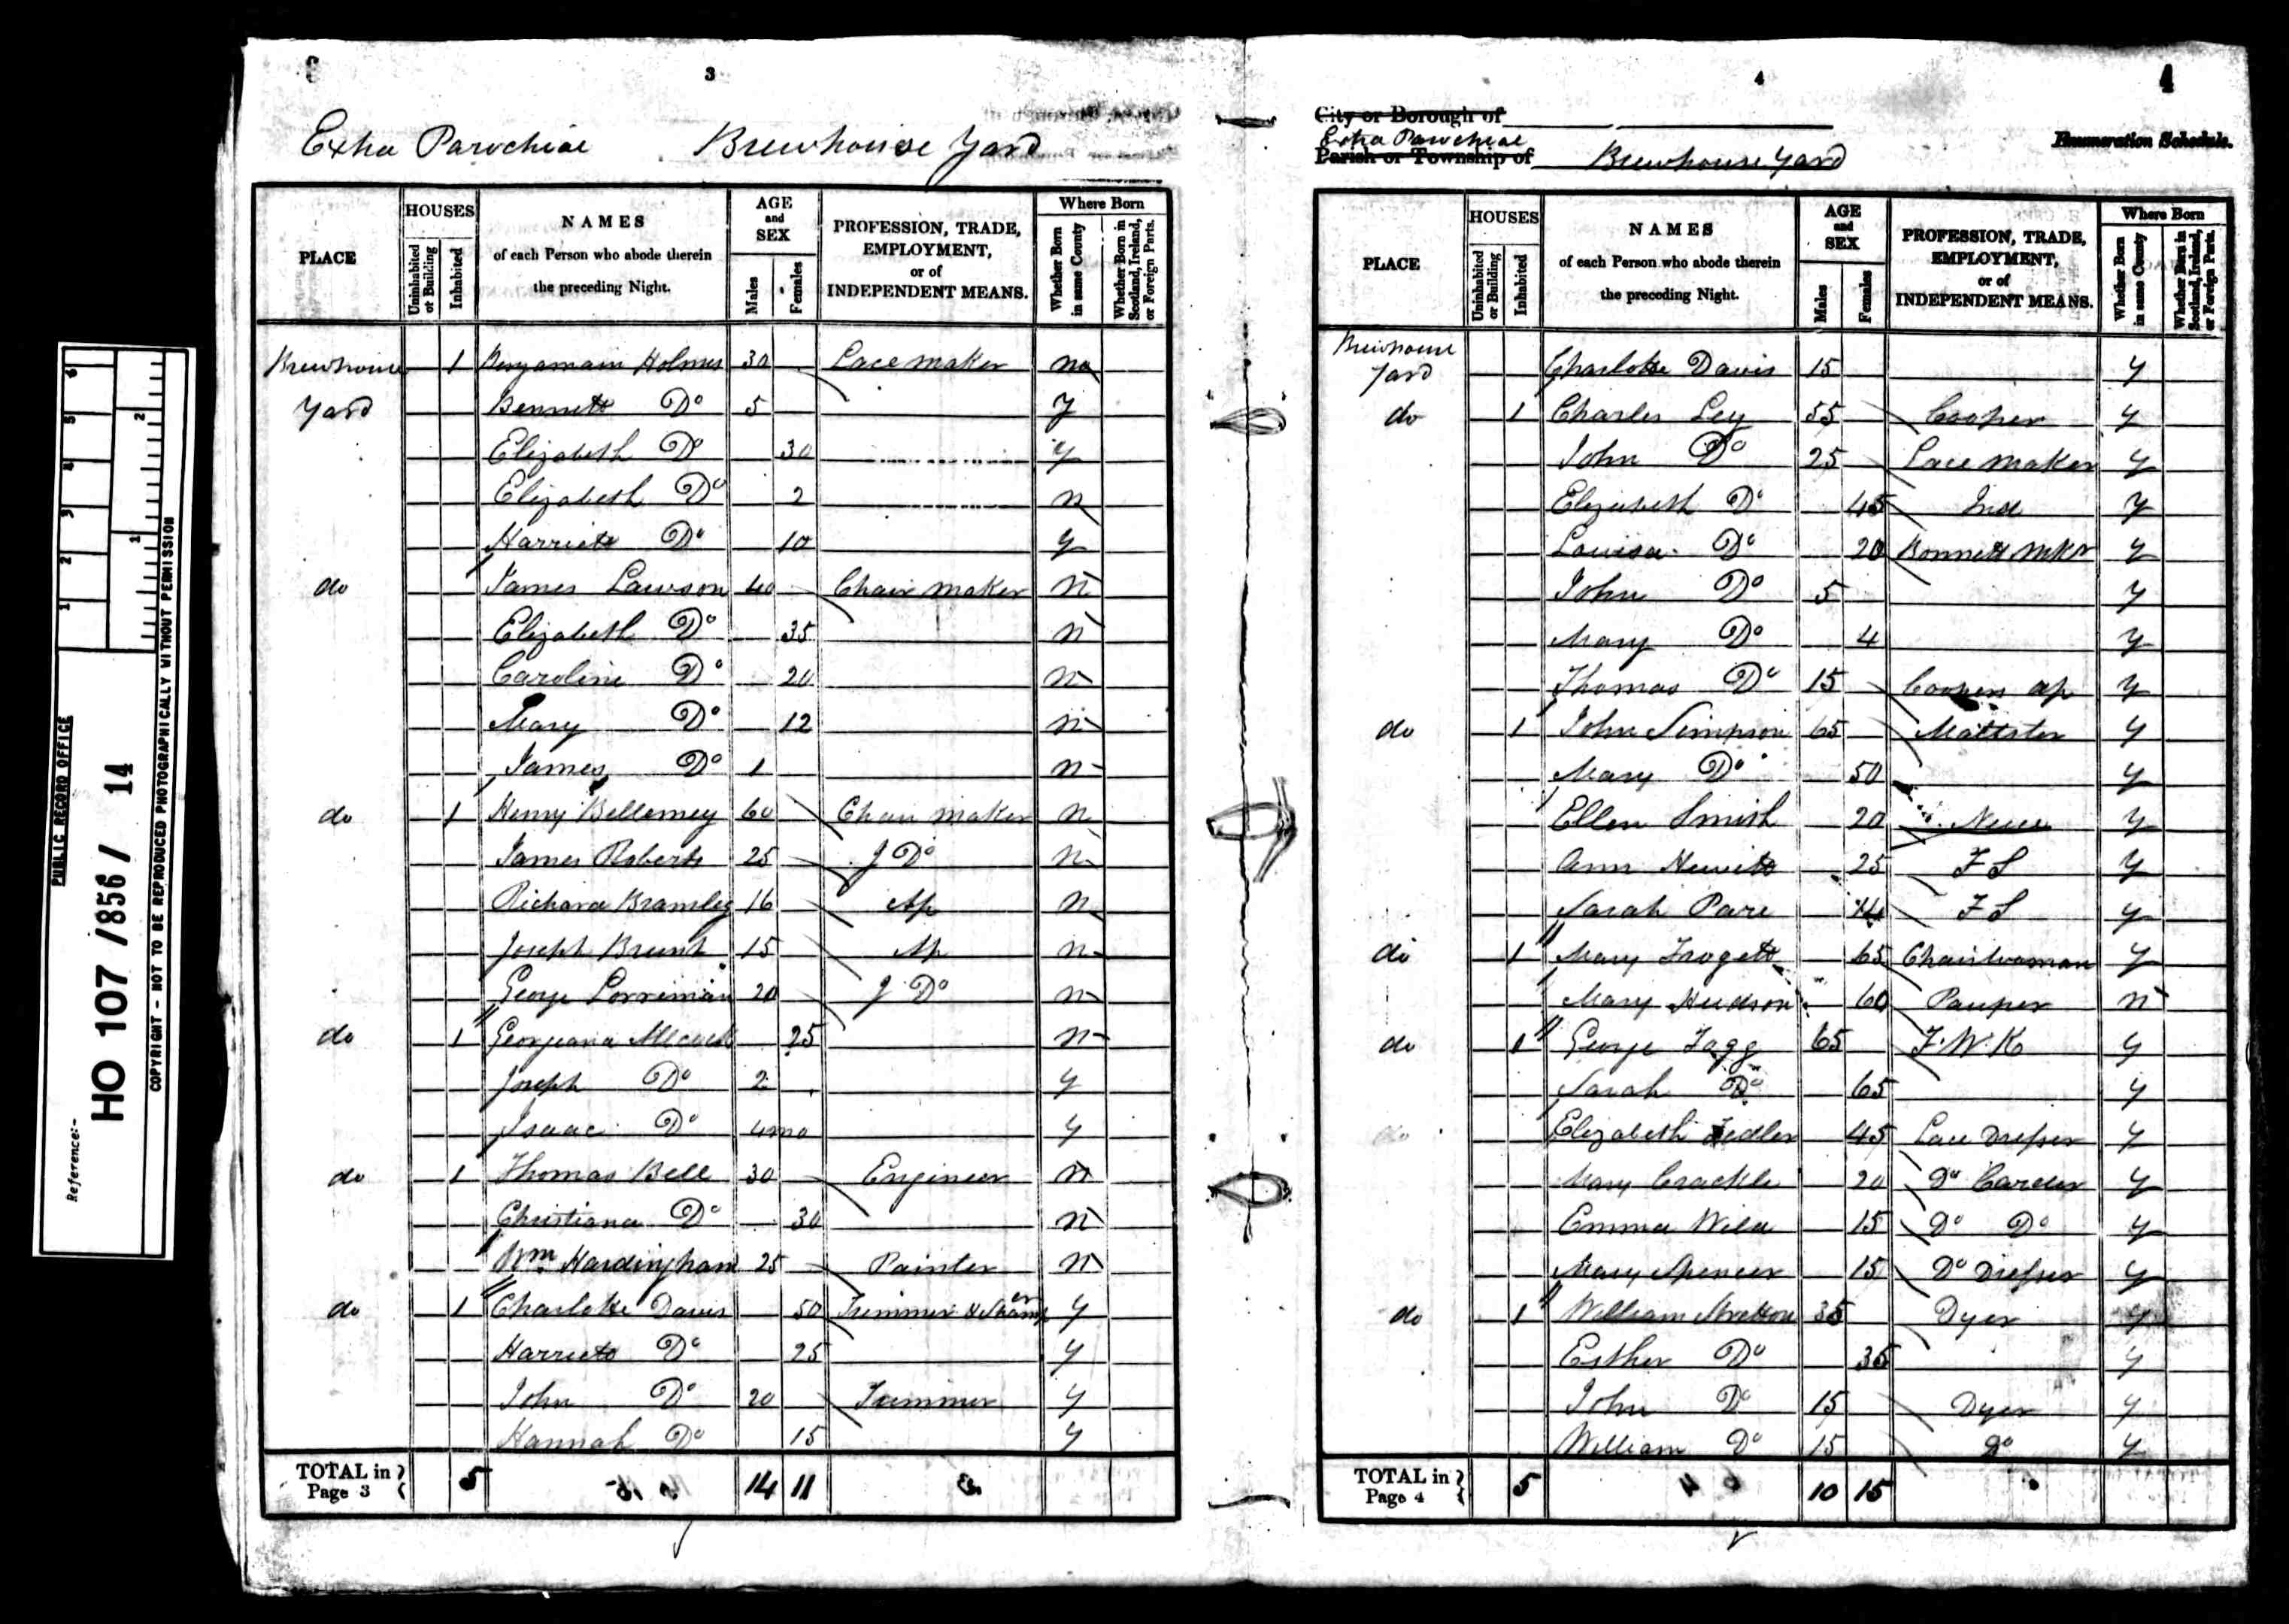 3
Extra Parochial Brewhouse Yard
PLACE HOUSES Uninhabited or Building Inhabited NAMES of each Person who abode therein the preceding Night. AGE and SEX Males Females PROFESSION, TRADE, EMPLOYMENT, or of INDEPENDENT MEANS. Where Born Whether Born in same County Whether Born in Scotland, Ireland, or Foreign Parts.
Brewhouse 1 Benjamain Holmes 30 Lace maker no
Yard Bennett Do 5 y
Elizabeth Do 30 y
Elizabeth Do 2 n
Harriett Do 10 y
do James Lawson 40 Chair maker n
Elizabeth Do 35 n
Caroline Do 20 n
Mary Do 12 n
James Do 1 n
do 1 Henry Bellemey 60 Chair maker n
James Roberts 25 J Do n
Richard Bramley 16 Ap n
Joseph Brunt 15 Ap n
George Lorriman 20 J Do n
do 1 Georgeana 25 n
Joseph Do 2 y
Isaac Do 4 mo y
do 1 Thomas Bell 30 Engineer n
Christiana Do 30 n
Wm Hardingham 25 Painter n
do 1 Charlotte Davis 50 Trimmer y
Harriett Do 25 y
John Do 20 Trimmer y
Hannah Do 15 y
TOTAL in Page 3 5 14 11
4
4
City or Borough of
Extra Parochial
Parish or Township of Brewhouse Yard
Enumeration Schedule.
PLACE HOUSES Uninhabited or Building Inhabited NAMES of each Person who abode therein the preceding Night. AGE and SEX Males Females PROFESSION, TRADE, EMPLOYMENT, or of INDEPENDENT MEANS. Where Born Whether Born in same County Whether Born in Scotland, Ireland, or Foreign Parts.
Brewhouse Yard Charlotte Davis 15 y
do 1 Charles Ley 55 Cooper y
John Do 25 Lace maker y
Elizabeth Do 45 Ind y
Louisa Do 20 Bonnett mkr y
John Do 5 y
Mary Do 4 y
Thomas Do 15 Coopers ap y
do 1 John Simpson 65 Maltster y
Mary Do 50 y
Ellen Smith 20 Neice y
Ann Hewitt 25 F S y
Sarah Pare 14 F S y
do 1 Mary Frogett 65 Chairwoman y
Mary Hudson 60 Pauper n
do 1 George Fagg 65 F.W.K y
Sarah Do 65 y
do Elizabeth 45 Lace Dresser y
Mary Crackle 20 Do Carder y
Emma Wild 15 Do Do y
Mary Spencer 15 Do Dresser y
do 1 William Stretton 35 Dyer y
Esther Do 35 y
John Do 15 Dyer y
William Do 15 Do y
TOTAL in Page 4 5 10 15
PUBLIC RECORD OFFICE
Reference:-
HO 107 /856 / 14
COPYRIGHT - NOT TO BE REPRODUCED PHOTOGRAPHICALLY WITHOUT PERMISSION
1 2 3 4 5 6
1 2